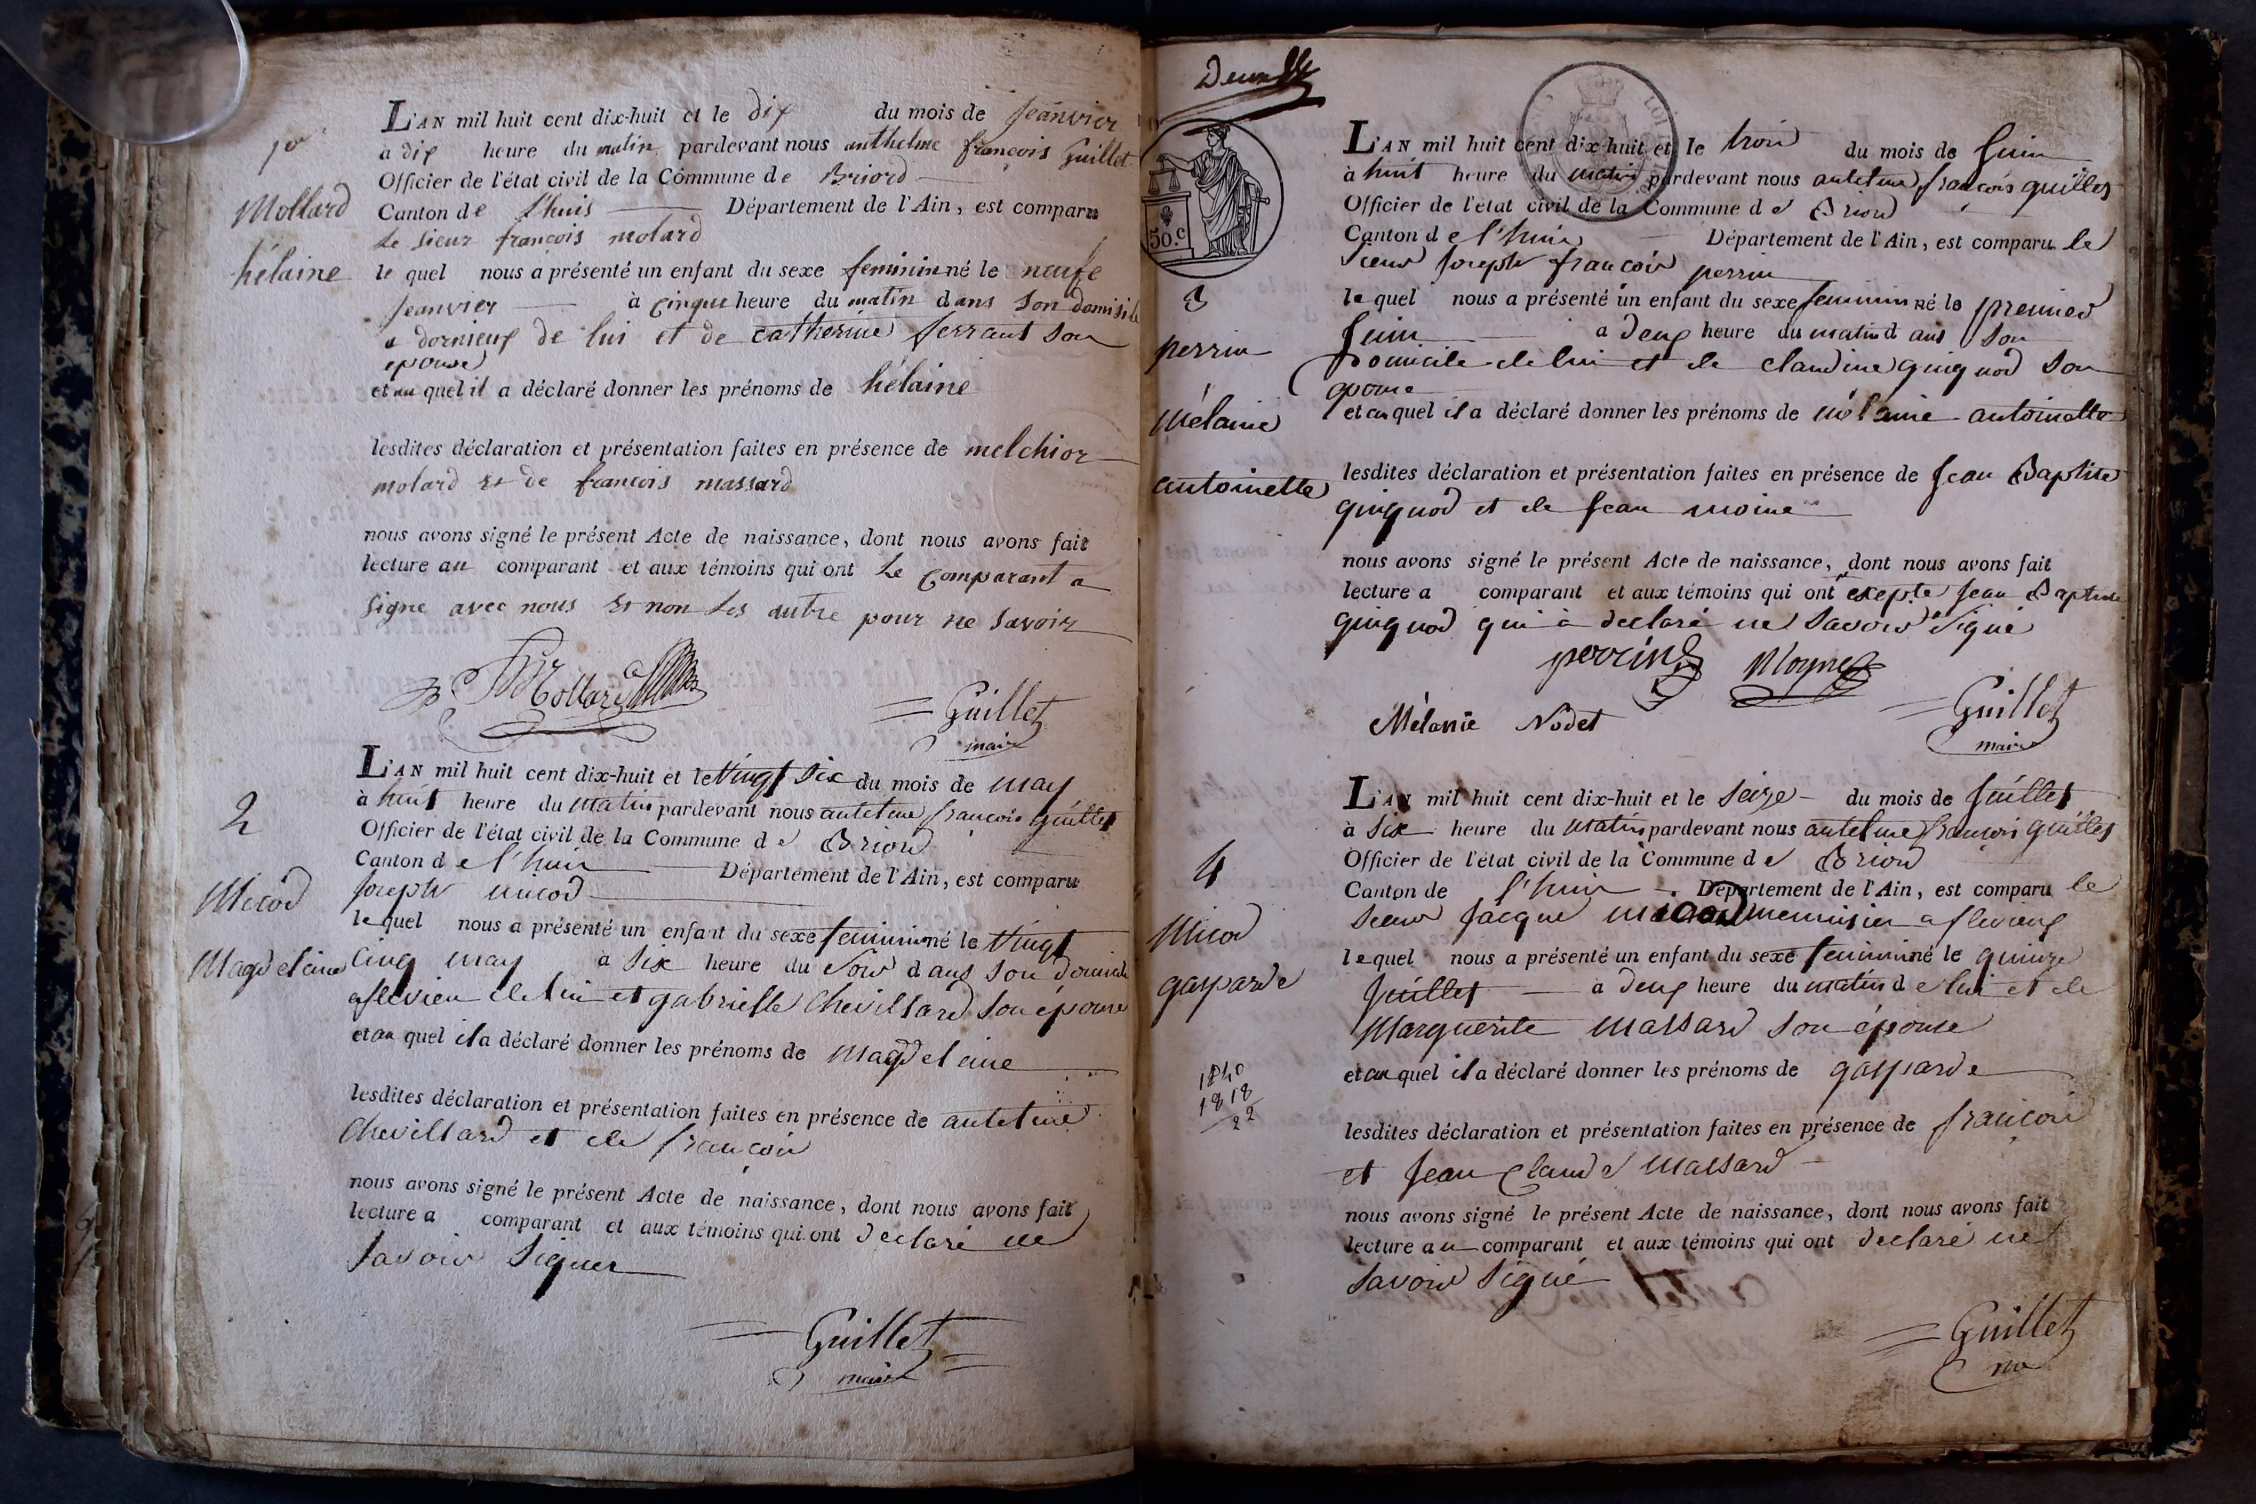 1er
Mollard
hélaine
L'AN mil huit cent dix-huit et le dix du mois de Jeanvier
a dix heure du matin pardevant nous anthelme françois Guillet
Officier de l'état civil de la Commune de Briord
Canton de l'huis Département de l'Ain, est comparu
Le sieur françois molard
le quel nous a présenté un enfant du sexe feminin né le neufe
Jeanvier à cinque heure du matin dans son domisile
a dornieux de lui et de catherine ferrant son
epouse
et au quel il a déclaré donner les prénoms de hélaine
lesdites déclaration et présentation faites en présence de melchior
molard et de françois massard
nous avons signé le présent Acte de naissance, dont nous avons fait
lecture au comparant et aux témoins qui ont Le comparant a
signe avec nous et non Les autre pour ne savoir
Mollard
Guillet
maire
2
Micod
Magdelaine
L'AN mil huit cent dix-huit et le vingt six du mois de may
à huit heure du matin pardevant nous antelme françois guillet
Officier de l'état civil de la Commune de Briord
Canton de l'huis Département de l'Ain, est comparu
joseph micod
le quel nous a présenté un enfant du sexe feminin né le vingt
cinq may à six heure du soir dans son domicile
a flevieu de lui et gabrielle chevillard son épouse
et au quel il a déclaré donner les prénoms de magdelaine
lesdites déclaration et présentation faites en présence de antelme
chevillard et de françois
nous avons signé le présent Acte de naissance, dont nous avons fait
lecture a comparant et aux témoins qui ont declaré ne
savoir signer
Guillet
maire
50.c
3
perrin
mélanie
antoinette
L'AN mil huit cent dix-huit et le trois du mois de juin
à huit heure du matin pardevant nous antelme françois guillet
Officier de l'état civil de la Commune de Briord
Canton de l'huis Département de l'Ain, est comparu le
sieur joseph françois perrin
le quel nous a présenté un enfant du sexe feminin né le premier
juin a deux heure du matin dans son
domicile de lui et de claudine quiquod son
epouse
et au quel il a déclaré donner les prénoms de mélanie antoinette
lesdites déclaration et présentation faites en présence de jean Baptiste
quiquod et de jean moine
nous avons signé le présent Acte de naissance, dont nous avons fait
lecture a comparant et aux témoins qui ont excepte jean Baptiste
quiquod qui a declaré ne savoir signé
perrin Moyne
Mélanie Nodet
Guillet
maire
4
Micod
gasparde
1840
1818
22
L'AN mil huit cent dix-huit et le seize du mois de juillet
à six heure du matin pardevant nous antelme françois guillet
Officier de l'état civil de la Commune de Briord
Canton de l'huis Département de l'Ain, est comparu le
sieur jacque micod menuisier a flevieux
lequel nous a présenté un enfant du sexe feminin né le quinze
juillet à deux heure du matin de lui et de
Marguerite massard son épouse
et au quel il a déclaré donner les prénoms de gasparde
lesdites déclaration et présentation faites en présence de françois
et jean claude massard
nous avons signé le présent Acte de naissance, dont nous avons fait
lecture au comparant et aux témoins qui ont declaré ne
savoir signé
Guillet